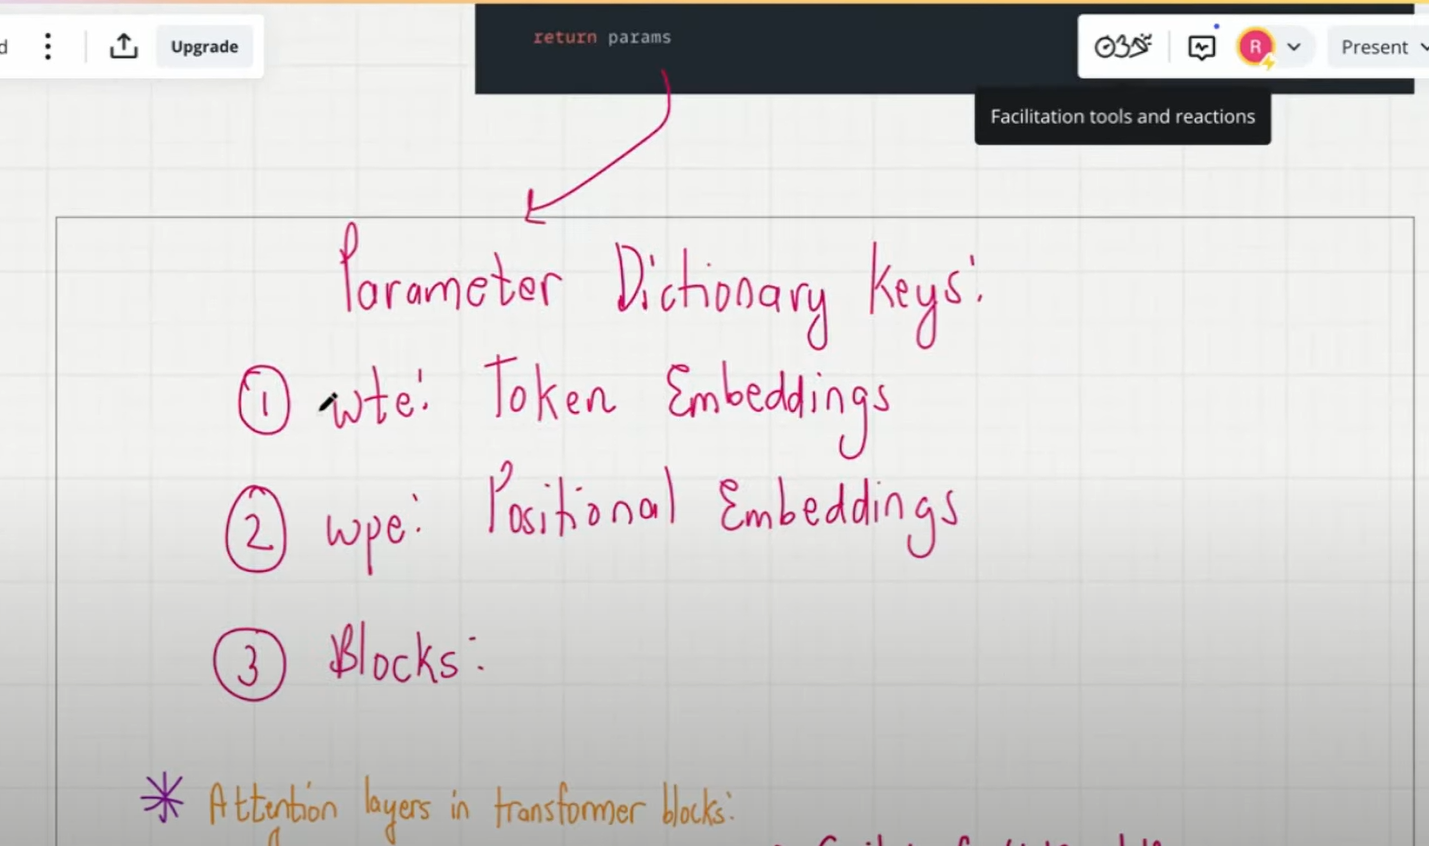 return params
d
Upgrade
R
Present
Facilitation tools and reactions
Parameter Dictionary Keys:
1 wte: Token Embeddings
2 wpe: Positional Embeddings
3 Blocks:
Attention layers in transformer blocks: